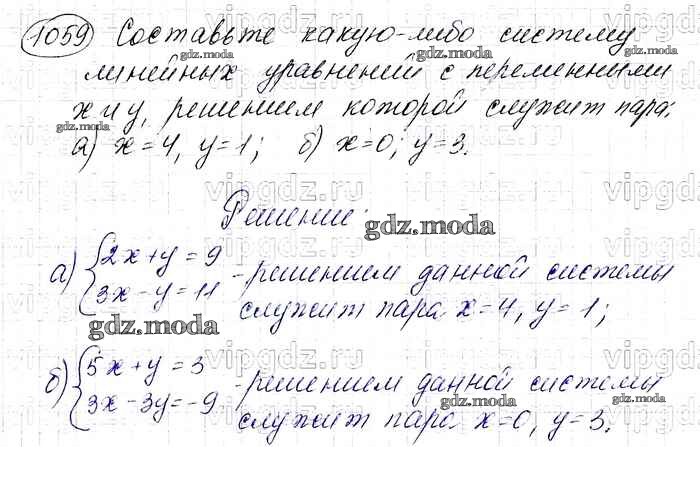 1059 Составьте какую-либо систему
линейных уравнений с переменными
x и y, решением которой служит пара:
а) x=4, y=1; б) x=0; y=3.
Решение:
а) {2x+y=9
3x-y=11 - решением данной системы
служит пара x=4, y=1;
б) {5x+y=3
3x-3y=-9 - решением данной системы
служит пара x=0, y=3.
vipgdz.ru
gdz.moda